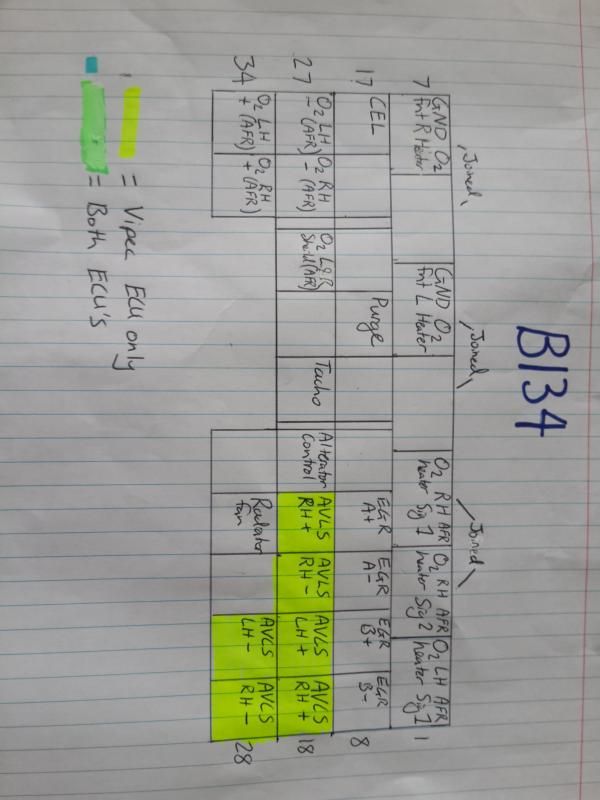 B134
Joined
Joined
Joined
7
GND O2
fnt R Heater
GND O2
fnt L Heater
O2 RH AFR
heater Sig 1
O2 RH AFR
heater Sig 2
O2 LH AFR
heater Sig 1
1
17
CEL
Purge
EGR
A+
EGR
A-
EGR
B+
EGR
B-
8
27
O2 LH
- (AFR)
O2 RH
- (AFR)
O2 L&R
Sheild (AFR)
Tacho
Alterator
Control
AVLS
RH+
AVLS
RH-
AVLS
LH+
AVLS
RH+
18
34
O2 LH
+ (AFR)
O2 RH
+ (AFR)
Radiator
fan
AVLS
LH-
AVLS
RH-
28
= Vipec ECU only
= Both ECU's